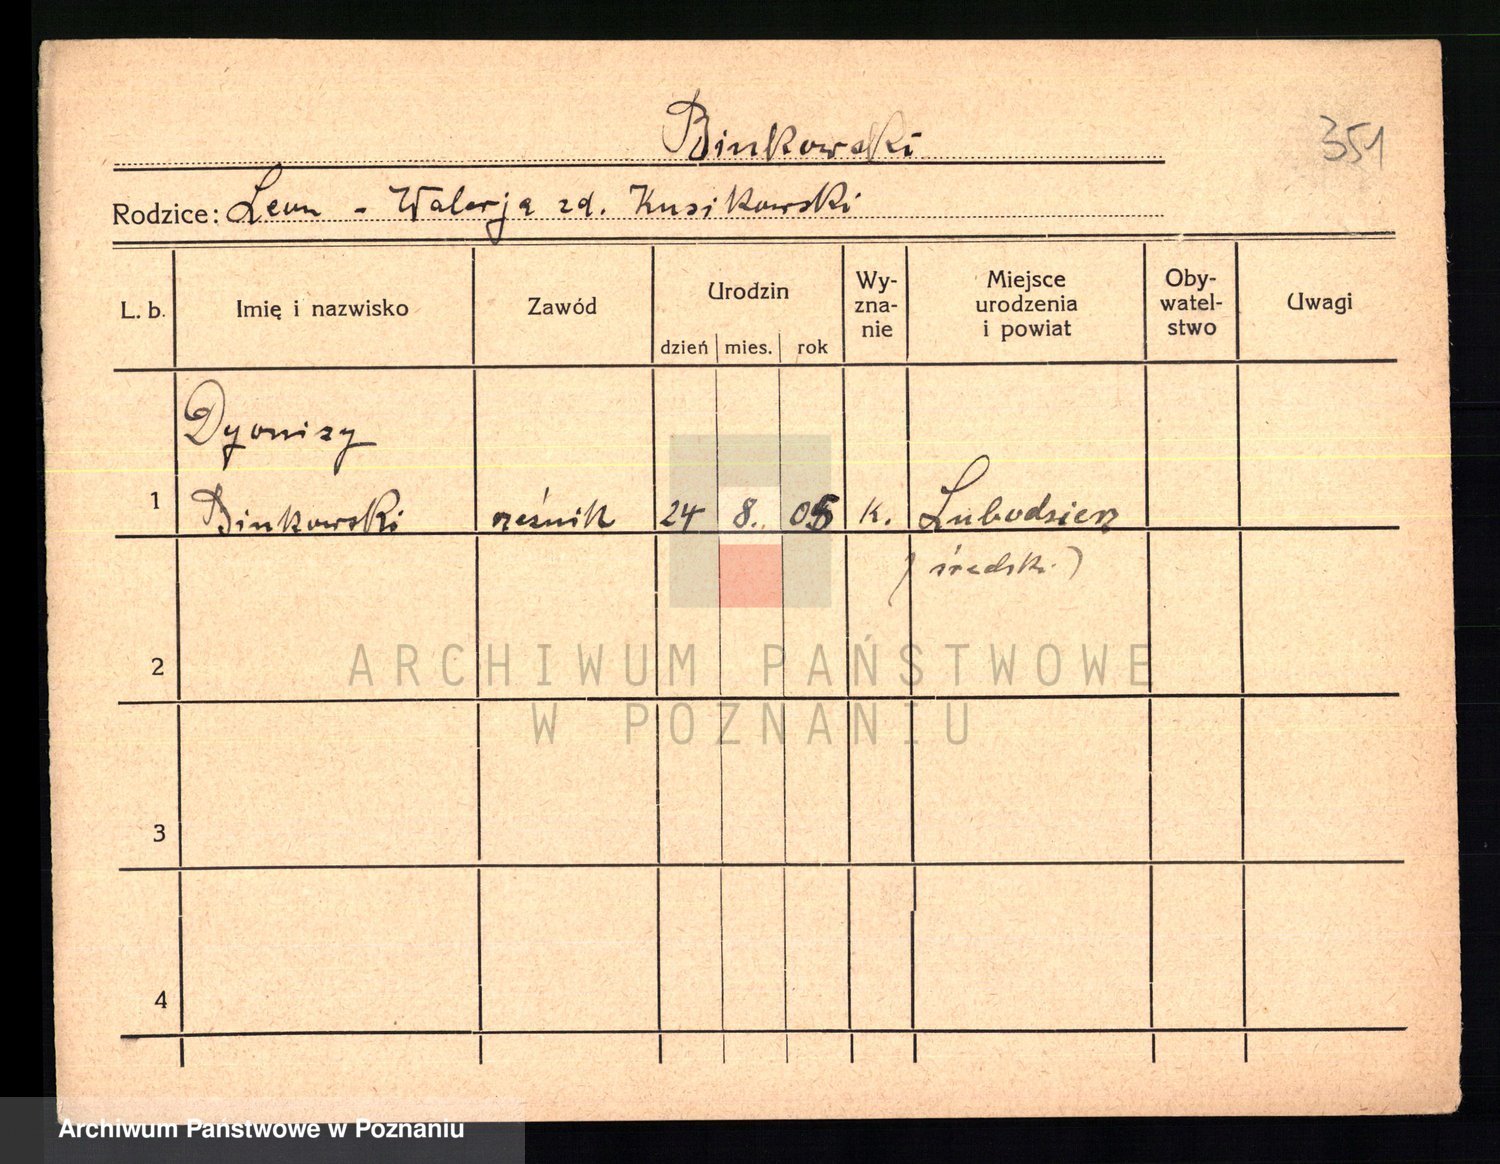 Binkowski
351
Rodzice: Leon - Walerja zd. Kusikowski
L. b.
Imię i nazwisko
Zawód
Urodzin
dzień mies. rok
Wy-
zna-
nie
Miejsce
urodzenia
i powiat
Oby-
watel-
stwo
Uwagi
Dyonizy
1 Binkowski rzeźnik 24 8. 05 K.
(średzk.)
2
ARCHIWUM PAŃSTWOWE
W POZNANIU
3
4
Archiwum Państwowe w Poznaniu